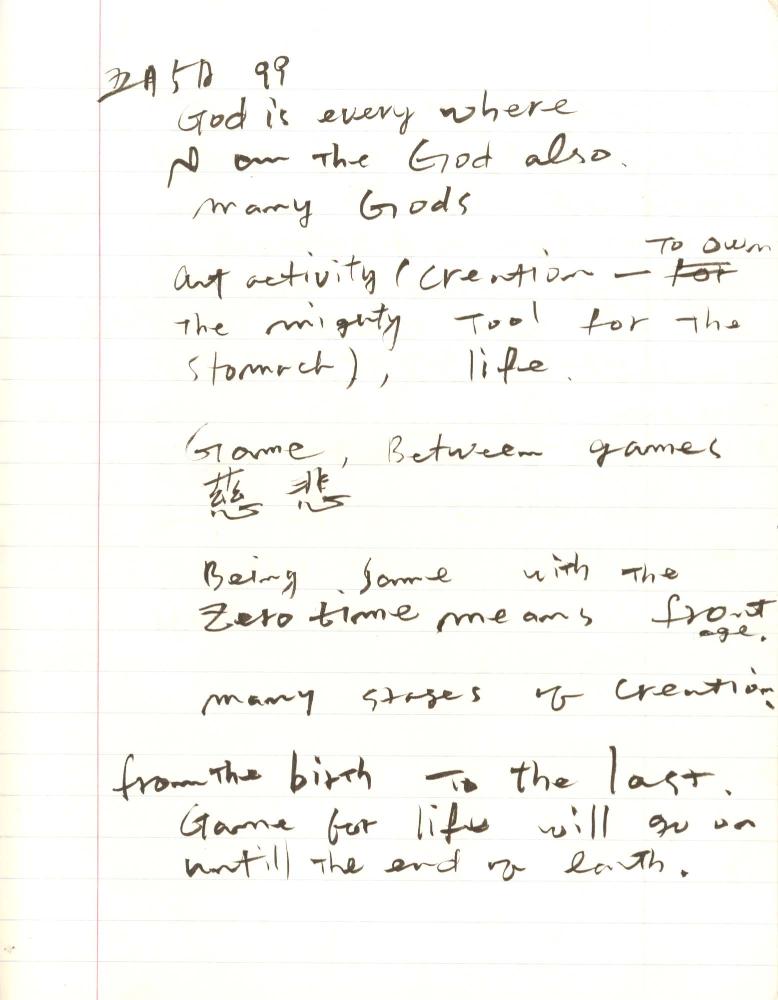 五月5日 99
God is every where
I am the God also.
many Gods
To own
art activity (creation — for
the mighty Tool for the
stomach), life.
Game, Between games
慈悲
Being same with the
Zero time means front
age.
many stages of creation.
from the birth To the last.
Game for life will go on
untill the end of earth.